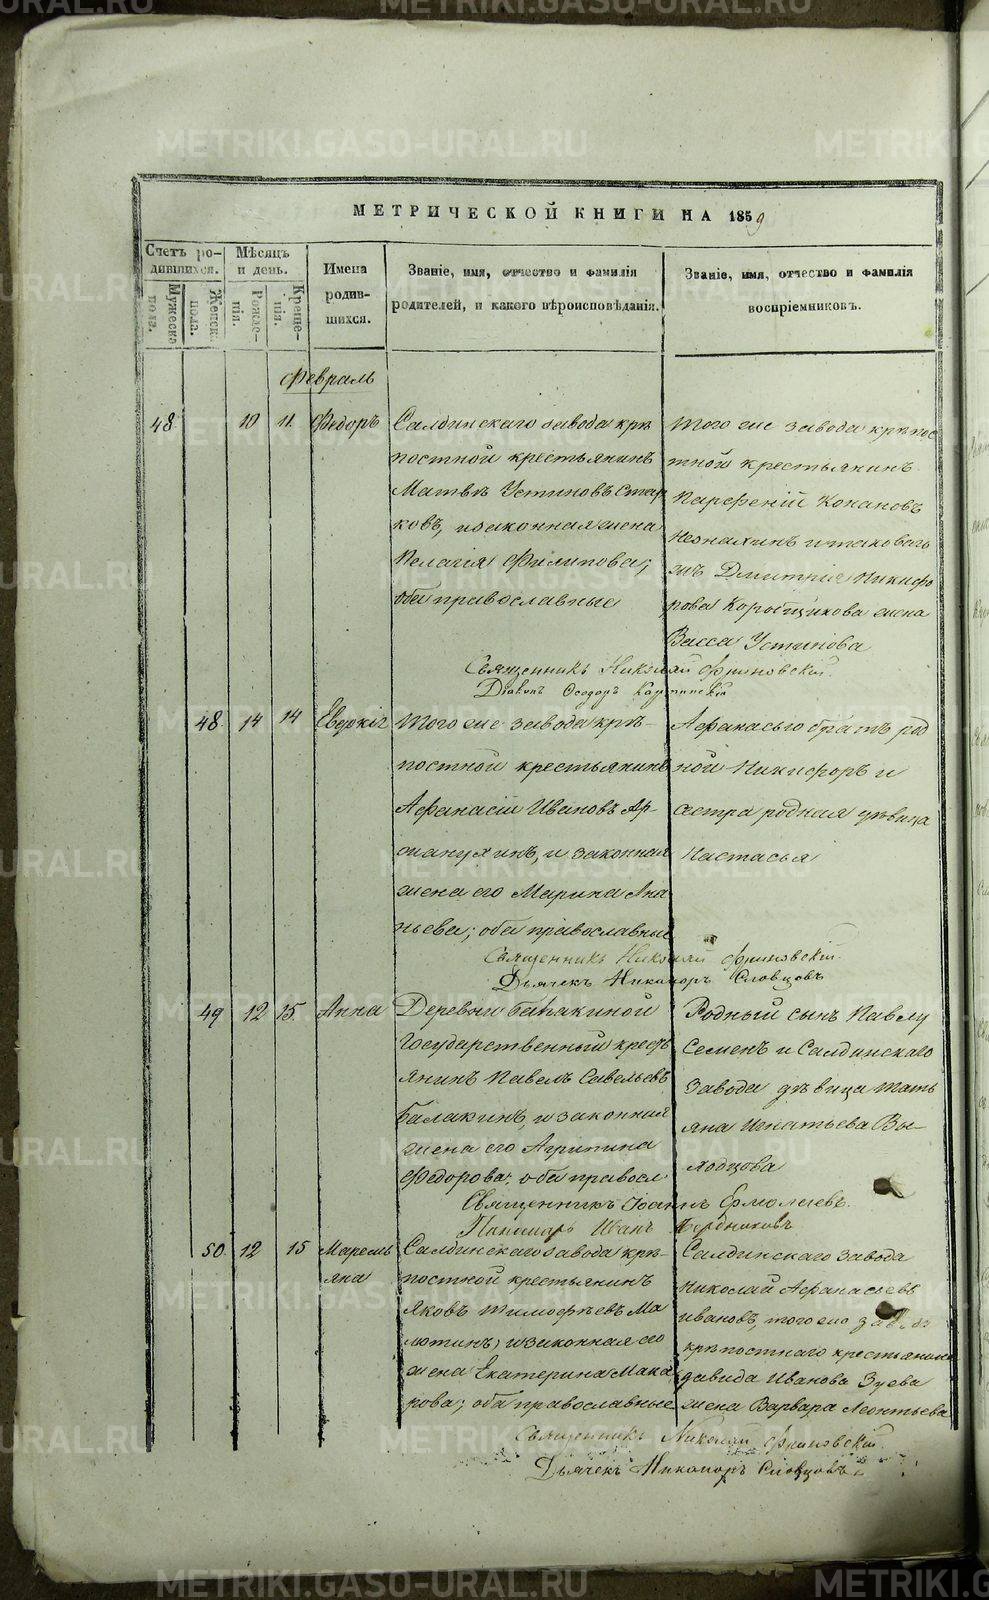 МЕТРИЧЕСКОЙ КНИГИ НА 1859
Счетъ ро-
дившихся.
Мѣсяцъ
и день.
Мужеска
пола.
Женска
пола.
Рожде-
нія.
Креще-
нія.
Имена
родив-
шихся.
Званіе, имя, отчество и фамилія
родителей, и какого вѣроисповѣданія.
Званіе, имя, отчество и фамилія
воспріемниковъ.
Февраль
48 10 11 Федоръ
Салдинскаго завода крѣ
постной крестьянинъ
Матвѣй Устиновъ Стар
ковъ, и законная жена
Пелагія Филипова;
оба православные
Того же завода крѣпос
тной крестьянинъ
Парфеній Кононовъ
и таковаго
жъ Дмитрія Никифо
рова Коробщикова жена
Васса Устинова
Священникъ Николай Фриновскій.
Діаконъ Ѳеодоръ
48 14 14
Того же завода крѣ-
постной крестьянинъ
Афанасій Ивановъ Ар-
и законная
жена его Марина Ана
ньева; оба православные
Афанасью братъ род
ной Никифоръ и
сестра родная дѣвица
Настасья
Священникъ Николай Фриновскій.
Дьячекъ Никаноръ Словцовъ
49 12 15 Анна
Деревни Балакиной
Государственный кресть
янинъ Павелъ Савельевъ
Балакинъ, и законная
жена его Агрипина
Федорова; оба правосл
Родный сынъ Павлу
Семенъ и Салдинскаго
завода дѣвица Тать
яна Игнатьева Вы-
ходцова
Священникъ Іоаннъ Ермолаевъ.
Пономарь Иванъ Бердниковъ
50 12 15 Маремь
яна
Салдинскаго завода крѣ-
постной крестьянинъ
Яковъ Тимофѣевъ Ма
лютинъ, и законная его
жена Екатерина Мака
рова; оба православные
Салдинскаго завода
Николай Афанасьевъ
Ивановъ, того же завода
крѣпостнаго крестьянина
Давида Иванова Зуева
жена Варвара Леонтьева
Священникъ Николай Фриновскій.
Дьячекъ Никаноръ Словцовъ
METRIKI.GASO-URAL.RU